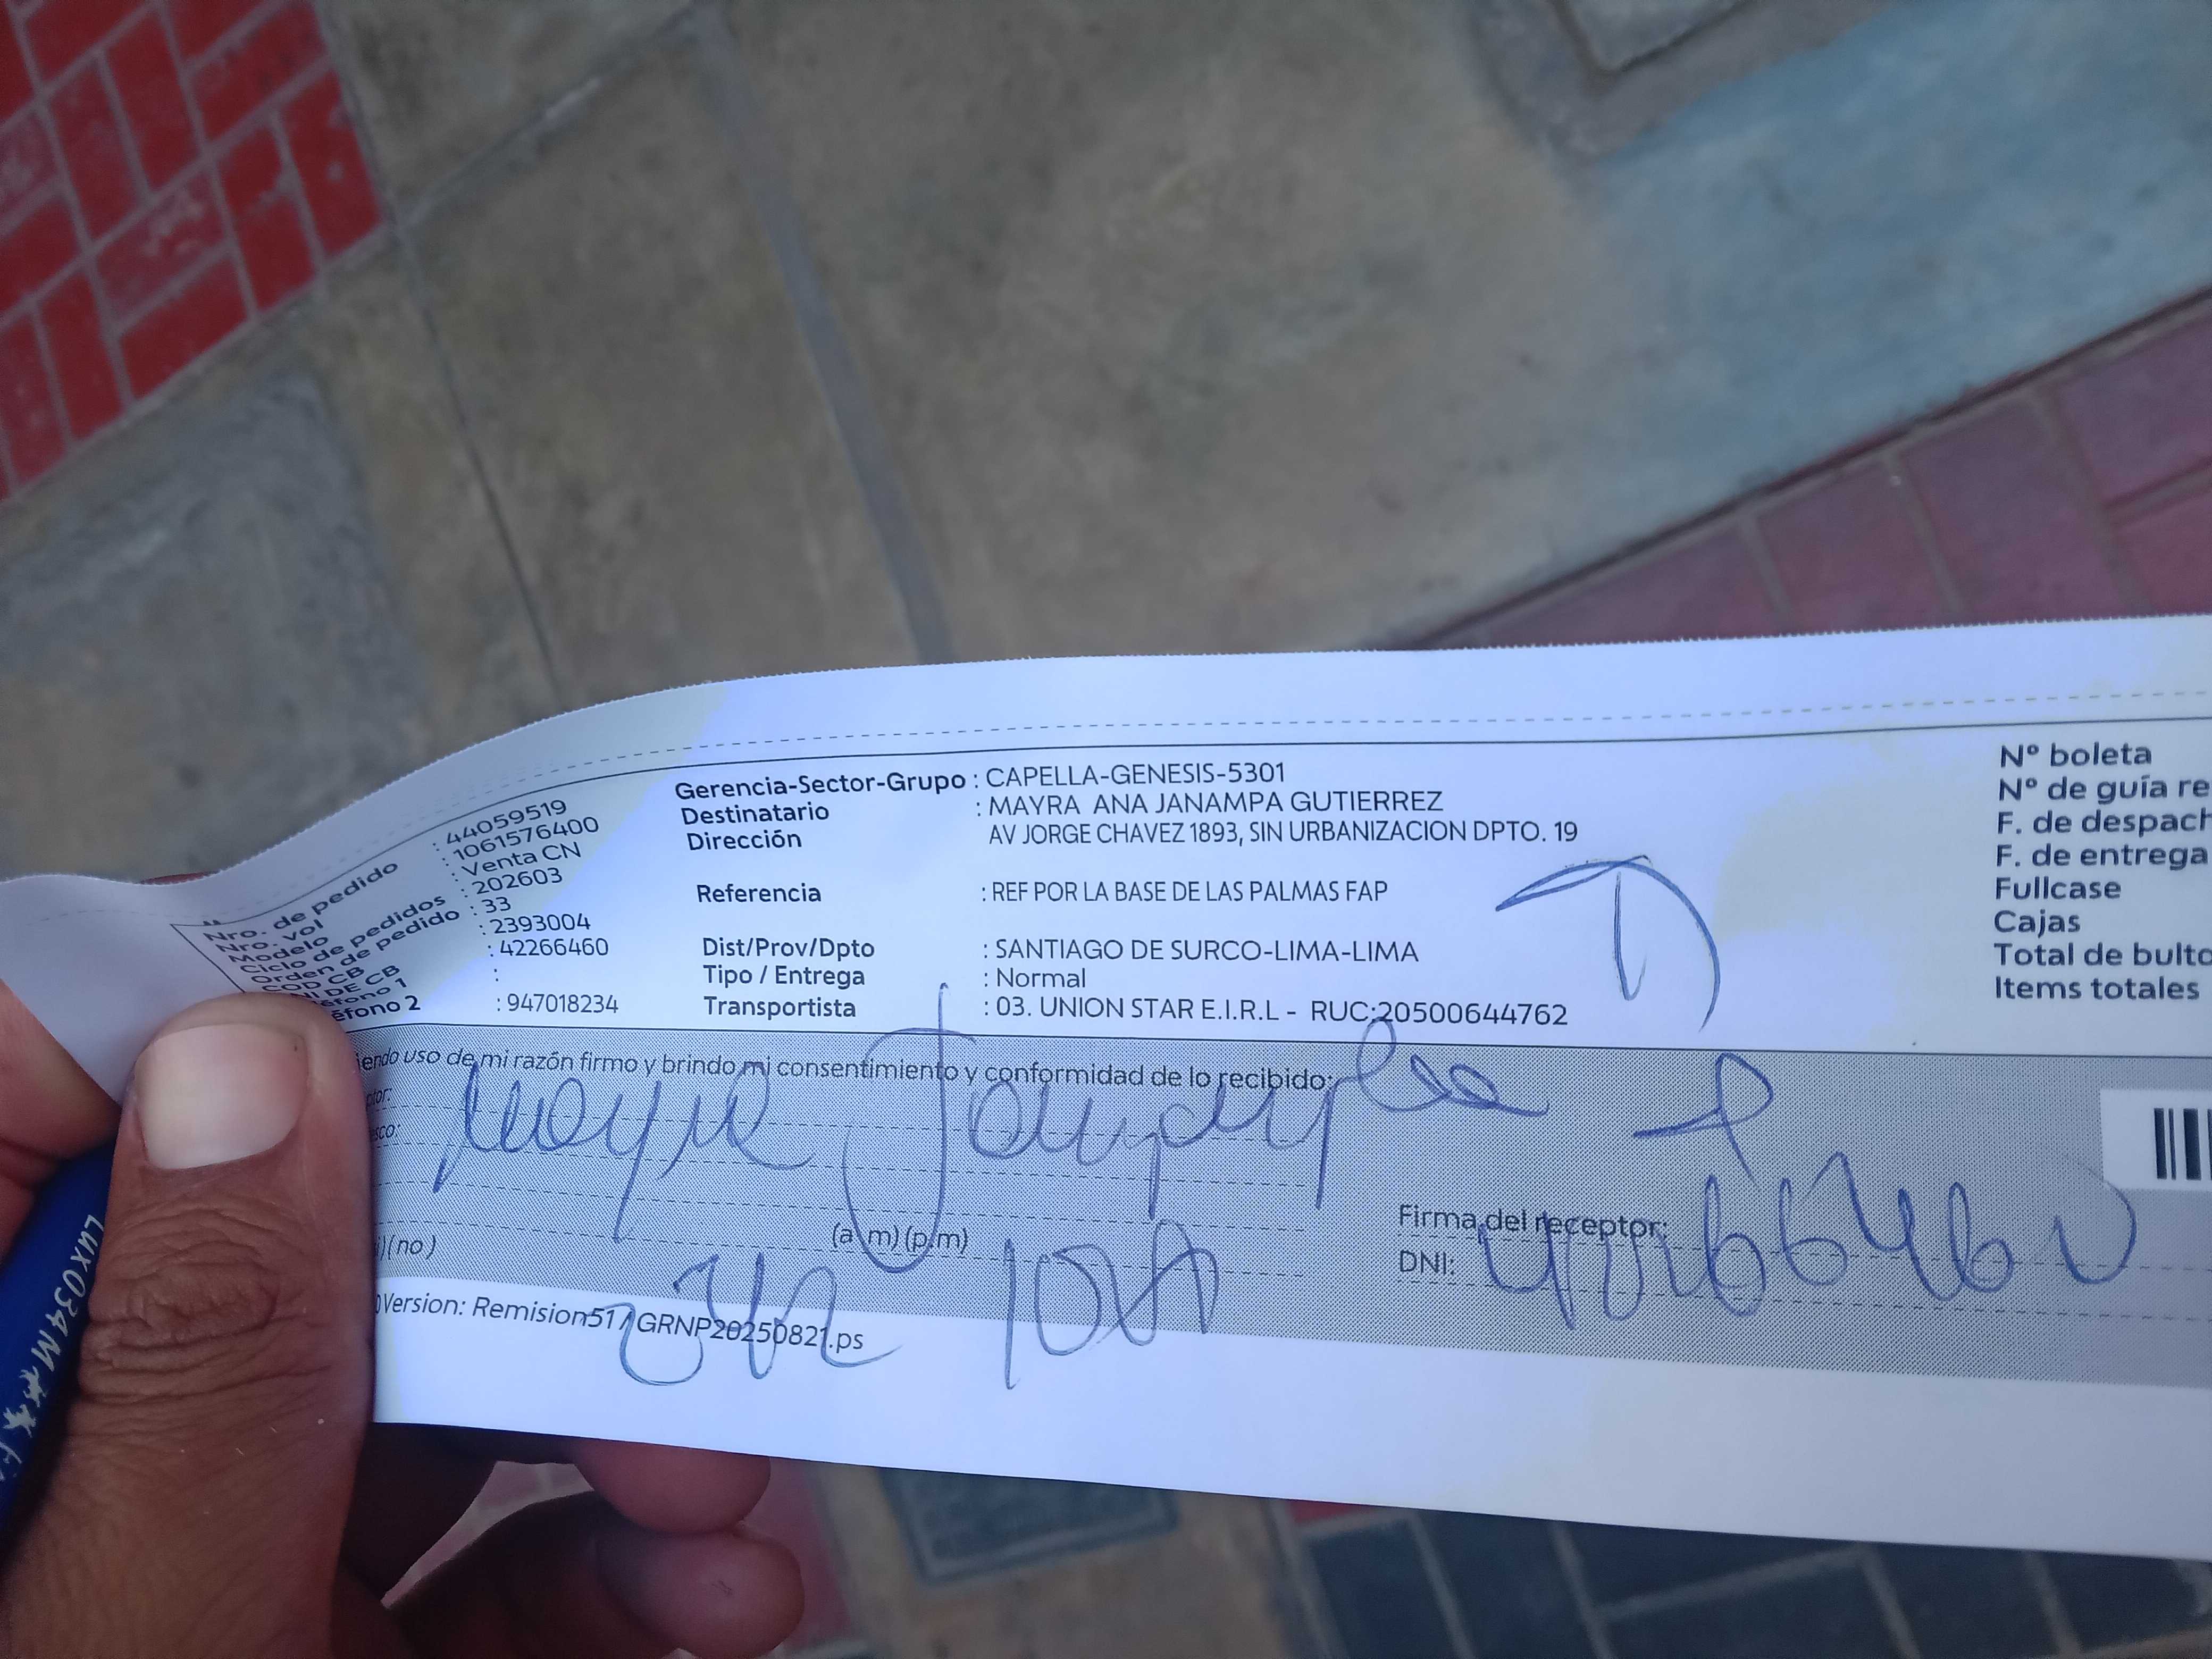 Nro. de pedido : 44059519
Nro. vol : 1061576400
Modelo : Venta CN
Ciclo de pedidos : 202603
Orden de pedido : 33
COD CB : 2393004
NI DE CB : 42266460
éfono 1 :
éfono 2 : 947018234
Gerencia-Sector-Grupo : CAPELLA-GENESIS-5301
Destinatario : MAYRA ANA JANAMPA GUTIERREZ
Dirección AV JORGE CHAVEZ 1893, SIN URBANIZACION DPTO. 19
Referencia : REF POR LA BASE DE LAS PALMAS FAP
Dist/Prov/Dpto : SANTIAGO DE SURCO-LIMA-LIMA
Tipo / Entrega : Normal
Transportista : 03. UNION STAR E.I.R.L - RUC:20500644762
Nº boleta
Nº de guía re
F. de despach
F. de entrega
Fullcase
Cajas
Total de bulto
Items totales
iendo uso de mi razón firmo y brindo mi consentimiento y conformidad de lo recibido:
ptor:
sco:
Janampa
(no) (a m) (p.m)
Firma del receptor:
DNI: 42266460
Version: Remision517GRNP20250821.ps
LUX034M